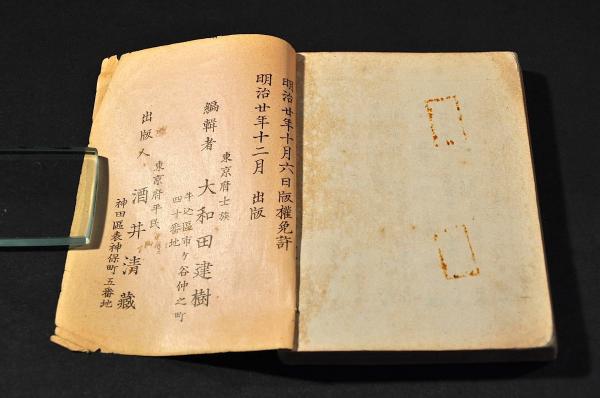 明治廿年十月六日版權免許
明治廿年十二月 出版
東京府士族
編輯者 大和田建樹
牛込區市ケ谷仲之町
四十番地
東京府平民
出版人 酒井清藏
神田區表神保町五番地